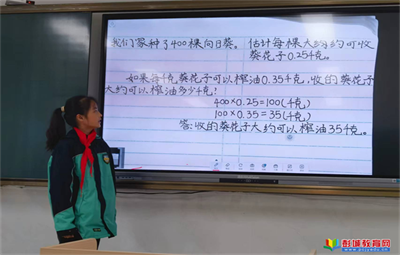 我们家种了400棵向日葵。估计每棵大约可收
葵花子0.25千克。
如果每千克葵花子可以榨油0.35千克,收的葵花子
大约可以榨油多少千克?
400×0.25=100(千克)
100×0.35=35(千克)
答:收的葵花子大约可以榨油35千克。
彭城教育网